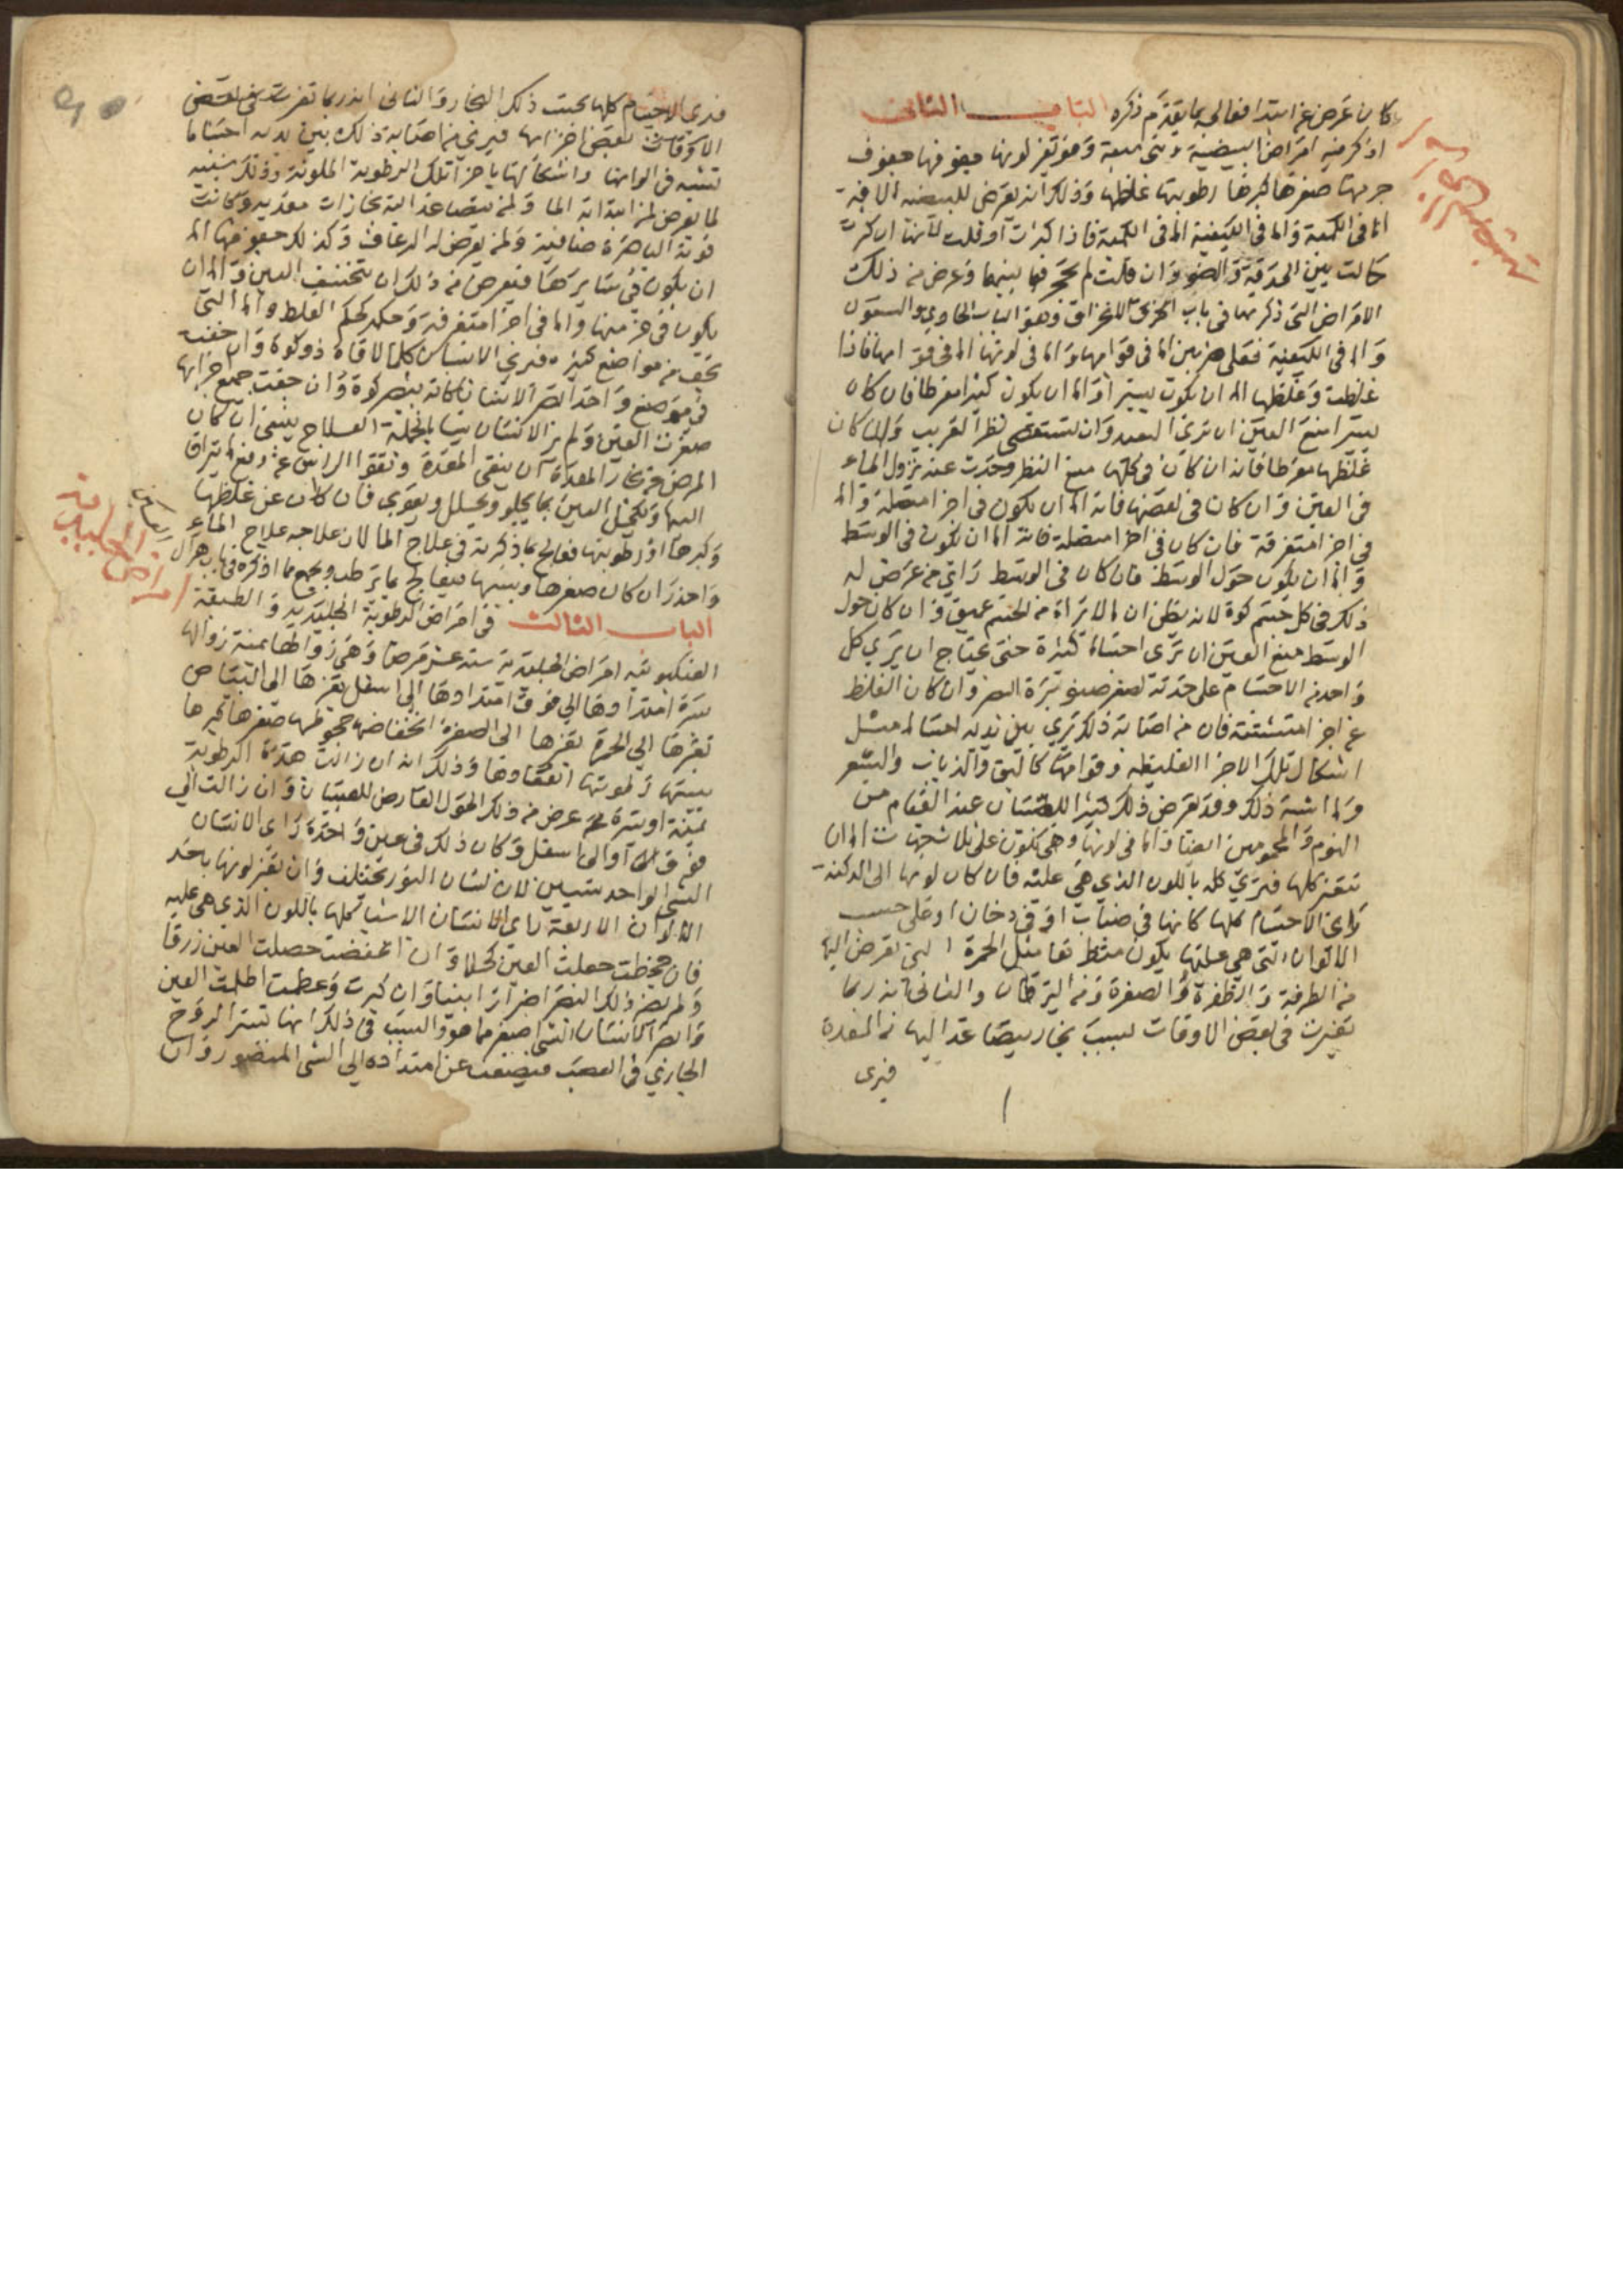 كان عرض عن ابتدا فعالج بما يقدم ذكره الباب الثاني
اذكر فيه امراض البيضية وهي سبعة وهو تغير لونها جفوفها جفوف
جزء منها صغرها كبرها رطوبتها غلظها وذلك انه يعرض للبيضية الافة
اما في الكمية واما في الكيفية اما في الكمية فاذا كبرت او قلت لانها ان كثرت
حالت بين الحدقة والضو وان قلت لم تحجز فيما بينهما وعرض من ذلك
الامراض التي ذكرتها في باب الخرق للانخراق وهو الباب الحادي والستون
واما في الكيفية فعلى ضربين اما في قوامها واما في لونها اما في قوامها فاذا
غلظت وغلظها اما ان يكون يسيرا واما ان يكون كثيرا مفرطا فان كان
يسيرا منع العين ان ترى البعيد وان تستقصي نظر القريب وان كان
غلظها مفرطا فانه ان كان في كلها منع النظر وحدث عنه نزول الماء
في العين وان كان في بعضها فانه اما ان يكون في اجزا متصلة واما
في اجزا متفرقة فان كان في اجزا متصلة فانه اما ان يكون في الوسط
واما ان يكون حول الوسط فان كان في الوسط راي من عرض له
ذلك في كل جسم كوة لانه يظن ان ما لا يراه من الجسم عميق وان كان حول
الوسط منع العين ان ترى اجساما كثيرة حتى يحتاج ان يرى كل
واحد من الاجسام على حدته لصغر صنوبرة البصر وان كان الغلظ
في اجزا متشتتة فان من اصابه ذلك يرى بين يديه اجساما مثل
اشكال تلك الاجزا الغليظة وقوامها كالبق والذباب والشعر
وما اشبه ذلك وقد يعرض ذلك كثيرا للصبيان عند القيام من
النوم والمحمومين ايضا واما في لونها وهي تكون على ثلاث جهات اما ان
تتغير كلها فيرى كله باللون الذي هي عليه فان كان لونها الى الدكنة
راى الاجسام كلها كانها في ضباب او في دخان او على حسب
الالوان التي هي عليها يكون منظرها مثل الحمرة التي تعرض اليها
من الطرفة والظفرة والصفرة من اليرقان والثاني انه ربما
تغيرت في بعض الاوقات لسبب بخار يتصاعد اليها من المعدة
فيرى
فيرى الاجسام كلها بحسب ذلك البخار والثاني انه ربما تغيرت في بعض
الاوقات بعض اجزايها فيرى من اصابه ذلك بين يديه اجساما
تشبه في الوانها واشكالها باجزا تلك الرطوبة الملونة وذلك شبيه
لما يعرض لمن ابتدا به الما ولمن يتصاعد اليه بخارات معدية وكانت
قوته الباصرة صافية ولمن يعرض له الرعاف وكذلك جفوفها اما
ان يكون في سايرها فيعرض من ذلك ان تتخسف العين واما ان
يكون في جزء منها واما في اجزا متفرقة وحكمه كحكم الغلظ واما التي
تجف من مواضع كثيرة فيرى الانسان كلما لاقاه ذو كوة وان جفت
في موضع واحد ابصر الانسان كانه يبصر كوة وان جفت جميع اجزايها
صغرت العين ولم ير الانسان شيا بالجملة العلاج ينبغي ان كان
المرض من بخار المعدة ان ينقي المعدة وتقوا الراس عن رفع ما يتراق
اليها وتكحل العين بما يجلو ويحلل ويقوي فان كان عن غلظها
وكبرها او رطوبتها فعالج بما ذكرته في علاج الما لان علاجه علاج الماء
واحذر ان كان صغرها ويبسها فيعالج بما يرطب ويجمع مما اذكره في باب هزال
الباب الثالث في امراض الرطوبة الجليدية والطبقة
العنكبوتية امراض الجليدية ستة عشر مرضا وهي زوالها يمنة زوالها
يسرة امتدادها الى فوق امتدادها الى اسفل تغيرها الى البياض
تغيرها الى الحمرة تغيرها الى الصفرة انخفاضها جحوظها صغرها كبرها
يبسها رطوبتها انعقادها وذلك انه ان زالت هذه الرطوبة
يمنة او يسرة عرض من ذلك الحول العارض للصبيان وان زالت الى
فوق او الى اسفل وكان ذلك في عين واحدة راى الانسان
الشي الواحد شيين لان لسان النور يختلف وان تغير لونها باحد
الالوان الاربعة راى الانسان الاشيا كلها باللون الذي هي عليه
فان جحظت جعلت العين كحلا وان انخفضت حصلت العين زرقا
ولم يضر ذلك البصر اضرارا بينا وان كبرت وعظمت اظلمت العين
وابصر الانسان الشي اصغر مما هو والسبب في ذلك انها تستر الروح
الجاري في العصب فيضعف عن امتداده الى الشي المنظور وان
امراض الجليدية